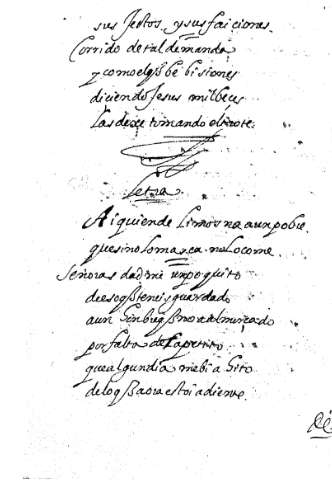 sus Jestos y sus faiciones
Corrido de tal demanda
y como el qe be bisiones
diciendo Jesus mil beces
las dexe tomando el trote.
Letra.
Ai quien de limosna a un pobre
que si no lo masca no lo come
Señoras dadme un poquito
de eso qe teneis guardado
aun qe no a almorçado
por falta de apetito
que algun dia
de lo qe aora estoi adiente.
De